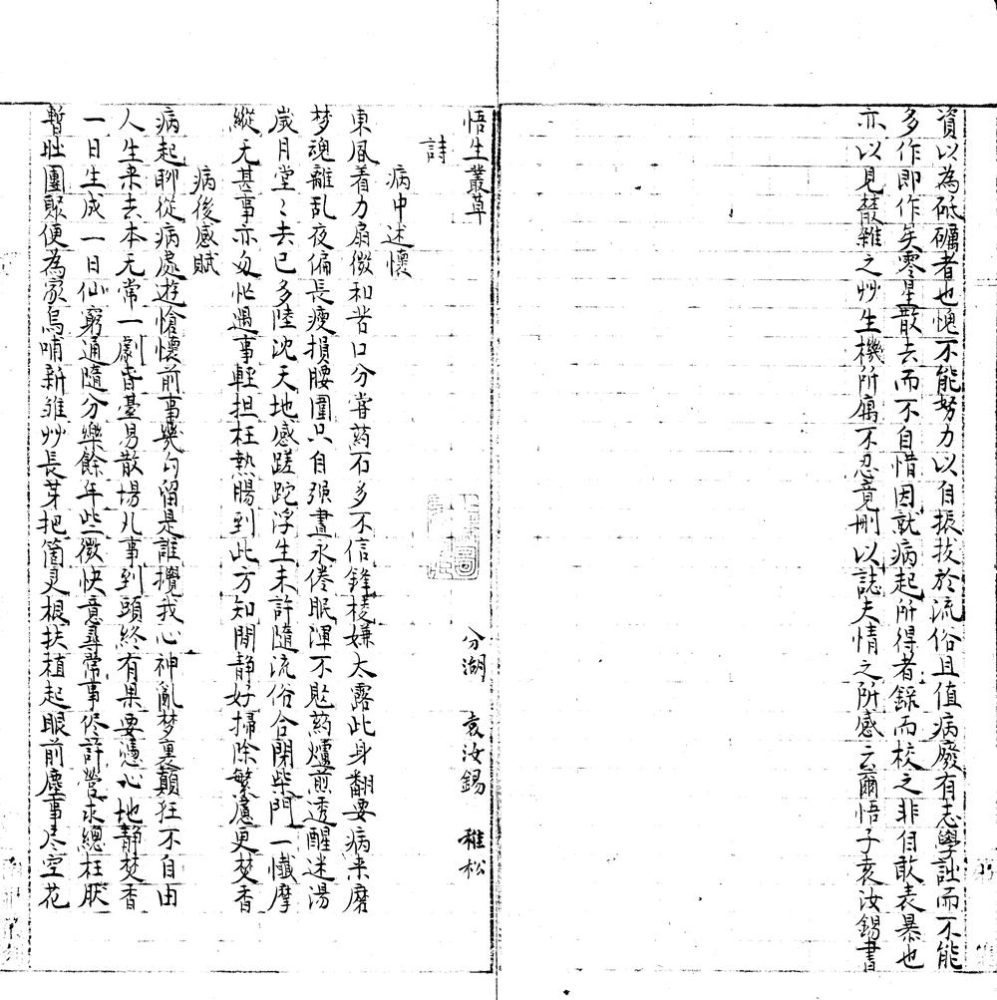 資以為砥礪者也愧不能努力以自振拔於流俗且值病廢有志學詘而不能
多作即作矣零星散去而不自惜因就病起所得者錄而校之非自敢表暴也
亦以見叢雜之艸生機所寓不忍竟刪以誌夫情之所感云爾悟子袁汝錫書
悟生叢草
分湖 袁汝錫 稚松
詩
病中述懷
東風着力扇微和苦口分甞葯石多不信鋒棱嫌太露此身翻要病来磨
梦魂離乱夜偏長瘦損腰圍只自張晝永倦眠渾不起葯爐煎透醒迷湯
歲月堂〻去已多陸沈天地感蹉跎浮生未許隨流俗合閉柴門一懺摩
縱无甚事亦匆忙遇事輕担枉熱腸到此方知閒静好掃除繁慮更焚香
病後感賦
病起聊從病處遊愴懷前事幾勾留是誰攪我心神亂梦裏顛狂不自由
人生来去本无常一劇昏臺易散場凡事到頭終有果要憑心地静焚香
一日生成一日仙窮通隨分樂餘年些〻微快意尋常事侭許營求總枉然
暫此團聚便為家烏哺新雏艸長芽把箇灵根扶植起眼前塵事尽空花